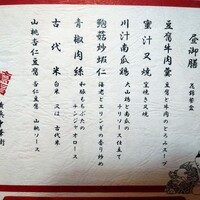 昼御膳
豆腐牛肉羹
豆腐と牛肉のとろみスープ
蜜汁叉焼
窯焼き叉焼
川汁南瓜鶏
大山鶏と南瓜のチリソース仕立て
鮑菇炒蝦仁
海老とエリンギの香り炒め
青椒肉絲
和豚もちぶたのチンジャオロース
古代米
白米 又は 古代米
山桃杏仁豆腐
杏仁豆腐 山桃ソース
横浜中華街